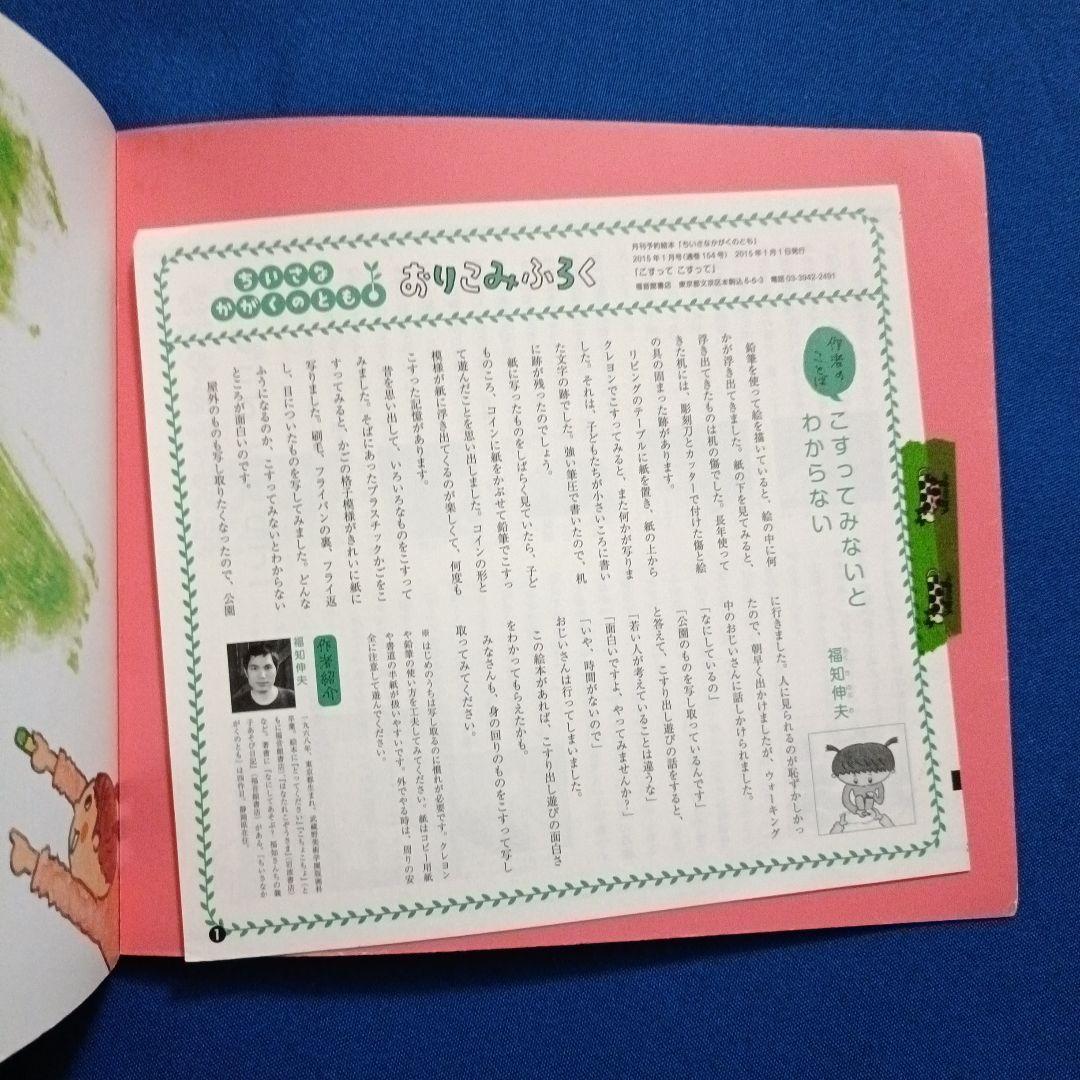 ちいさな
かがくのとも
おりこみふろく
月刊予約絵本「ちいさなかがくのとも」
2015年1月号(通巻154号) 2015年1月1日発行
「こすって こすって」
福音館書店 東京都文京区本駒込6-6-3 電話03-3942-2491
作者の
ことば
こすってみないと
わからない
福知伸夫
ふくちのぶお
鉛筆を使って絵を描いていると、絵の中に何
かが浮き出てきました。紙の下を見てみると、
浮き出てきたものは机の傷でした。長年使って
きた机には、彫刻刀とカッターで付けた傷と絵
の具の固まった跡があります。
リビングのテーブルに紙を置き、紙の上から
クレヨンでこすってみると、また何かが写りま
した。それは、子どもたちが小さいころに書い
た文字の跡でした。強い筆圧で書いたので、机
に跡が残ったのでしょう。
紙に写ったものをしばらく見ていたら、子ど
ものころ、コインに紙をかぶせて鉛筆でこすっ
て遊んだことを思い出しました。コインの形と
模様が紙に浮き出てくるのが楽しくて、何度も
こすった記憶があります。
昔を思い出して、いろいろなものをこすって
みました。そばにあったプラスチックかごをこ
すってみると、かごの格子模様がきれいに紙に
写りました。刷毛、フライパンの裏、フライ返
し、目についたものを写してみました。どんな
ふうになるのか、こすってみないとわからない
ところが面白いのです。
屋外のものも写し取りたくなったので、公園
に行きました。人に見られるのが恥ずかしかっ
たので、朝早く出かけましたが、ウォーキング
中のおじいさんに話しかけられました。
「なにしているの」
「公園のものを写し取っているんです」
と答えて、こすり出し遊びの話をすると、
「若い人が考えていることは違うな」
「面白いですよ、やってみませんか?」
「いや、時間がないので」
おじいさんは行ってしまいました。
この絵本があれば、こすり出し遊びの面白さ
をわかってもらえたかも。
みなさんも、身の回りのものをこすって写し
取ってみてください。
※はじめのうちは写し取るのに慣れが必要です。クレヨン
や鉛筆の使い方を工夫してみてください。紙はコピー用紙
や書道の半紙が扱いやすいです。外でやる時は、周りの安
全に注意して遊んでください。
作者紹介
福知伸夫
一九六八年、東京都生まれ。武蔵野美術学園版画科
卒業。絵本に『とってください』『こちょこちょ』(と
もに福音館書店)『はなたれこぞうさま』(岩波書店)
など。著書に『なにしてあそぶ? 福知さんちの親
子あそび日記』(福音館書店)がある。「ちいさなか
がくのとも」は四作目。静岡県在住。
1